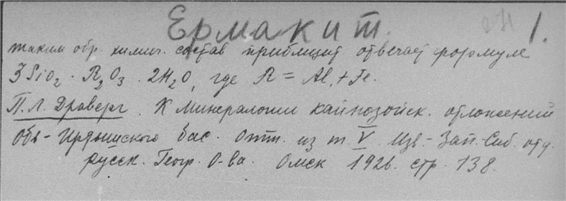 Ермакит. 1.
таким обр. химич. состав приблизит отвечает формуле
3SiO₂ · R₂O₃ · 2H₂O, где R = Al, + Fe.
П. Л. Драверт. К минералогии кайнозойск. отложений
Обь-Иртышского бас. Отт. из т V. Изв. Зап.-Сиб. отд.
Русск. Геогр. О-ва. Омск 1926. стр. 138.